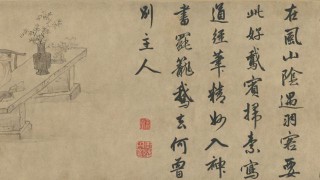 在風山陰遇羽客要
此好鵞賓掃素寫
道經筆精妙入神
書罷籠鵞去何曾
別主人